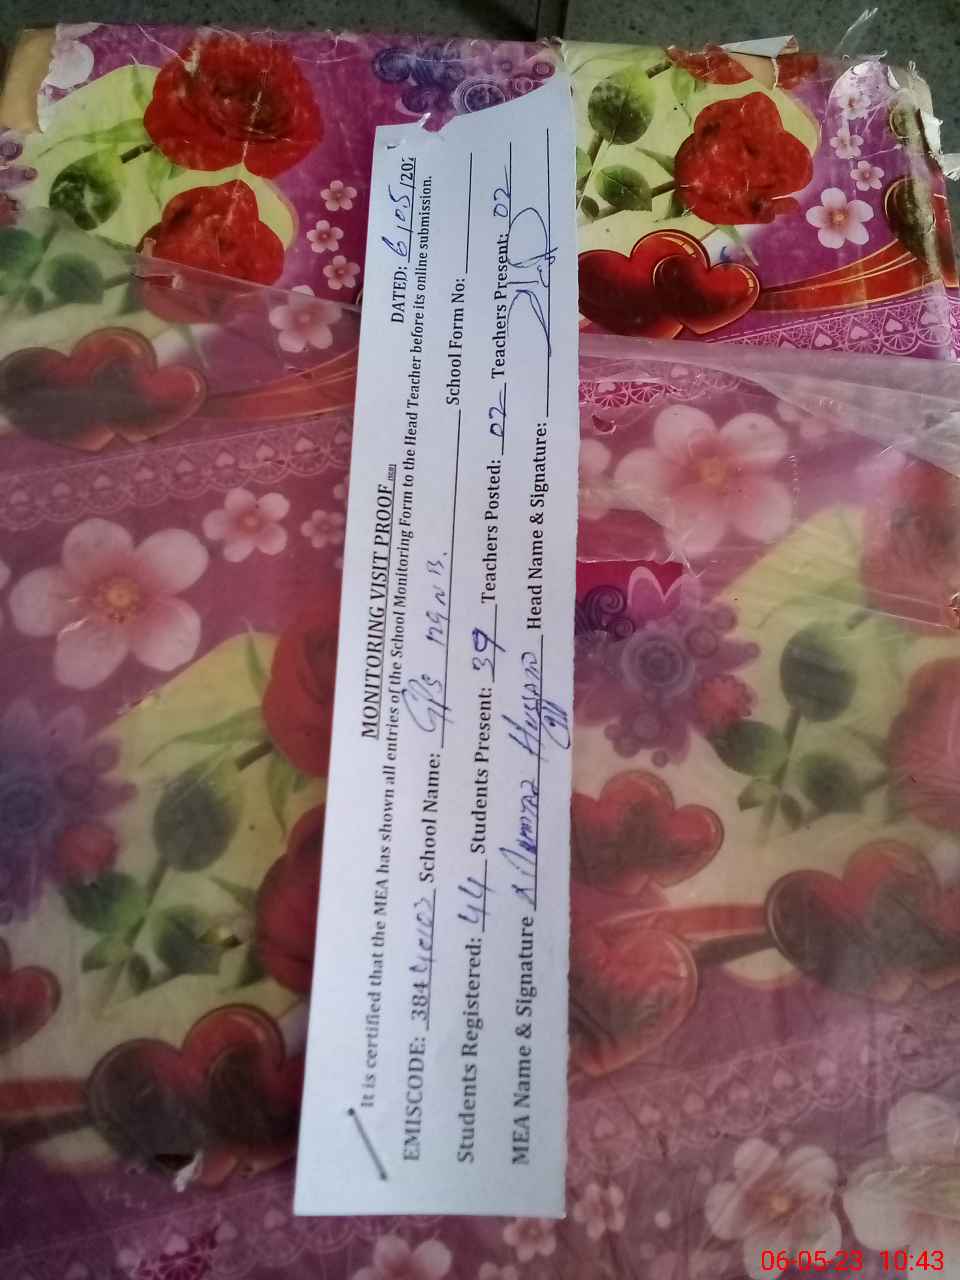 MONITORING VISIT PROOF
DATED: 6/05/202
It is certified that the MEA has shown all entries of the School Monitoring Form to the Head Teacher before its online submission.
EMISCODE: 38440103 School Name: GPS 129 NB. School Form No:
Students Registered: 44 Students Present: 39 Teachers Posted: 02 Teachers Present: 02
MEA Name & Signature Mumtaz Hussain Head Name & Signature:
06-05-23 10:43